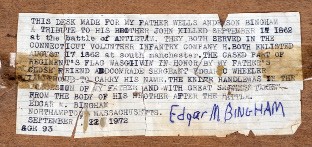 THIS DESK MADE FOR MY FATHER WELLS ANDERSON BINGHAM
A TRIBUTE TO HIS BROTHER JOHN KILLED SEPTEMBER 17 1862
at the battle of ANTIETAM. THEY BOTH SERVED IN THE
CONNECTICUT VOLUNTEER INFANTRY COMPANY H. BOTH ENLISTED
AUGUST 17 1862 at south manchester. THE
REGIMENT'S FLAG WAS IN HONOR BY MY FATHER'S
CLOSE FRIEND COMRADE SERGEANT WHEELER
HIS NAME. THE KNIFE HANDLE WAS IN THE
POSSESSION OF MY FATHER AND WITH GREAT TAKEN
FROM THE BODY OF HIS BROTHER AFTER THE BATTLE.
EDGAR M. BINGHAM
NORTHAMPTON MASSACHUSETTS.
SEPTEMBER 22 1972
AGE 93
Edgar M BINGHAM